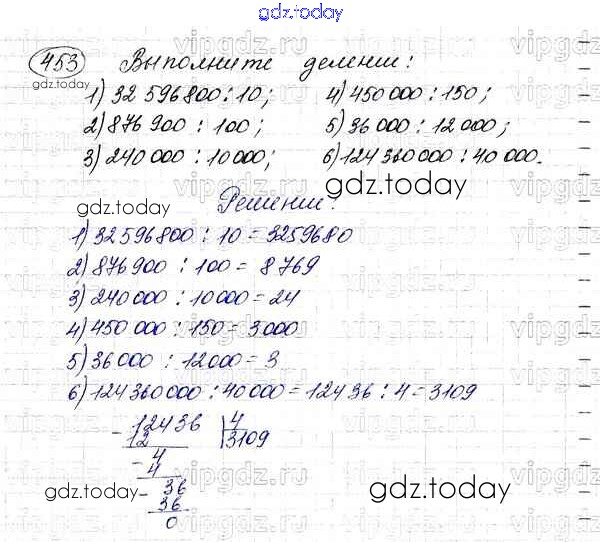 gdz.today
453 Выполните деление:
gdz.today
1) 32 596 800 : 10; 4) 450 000 : 150;
2) 876 900 : 100; 5) 36 000 : 12 000;
3) 240 000 : 10 000; 6) 124 360 000 : 40 000.
gdz.today gdz.today
Решение:
1) 32596800 : 10 = 3259680
2) 876900 : 100 = 8769
3) 240000 : 10000 = 24
4) 450 000 : 150 = 3000
5) 36000 : 12000 = 3
6) 124360000 : 40000 = 12436 : 4 = 3109
- 12436 | 4
12 3109
- 4
4
- 36
36
0
gdz.today gdz.today
vipgdz.ru